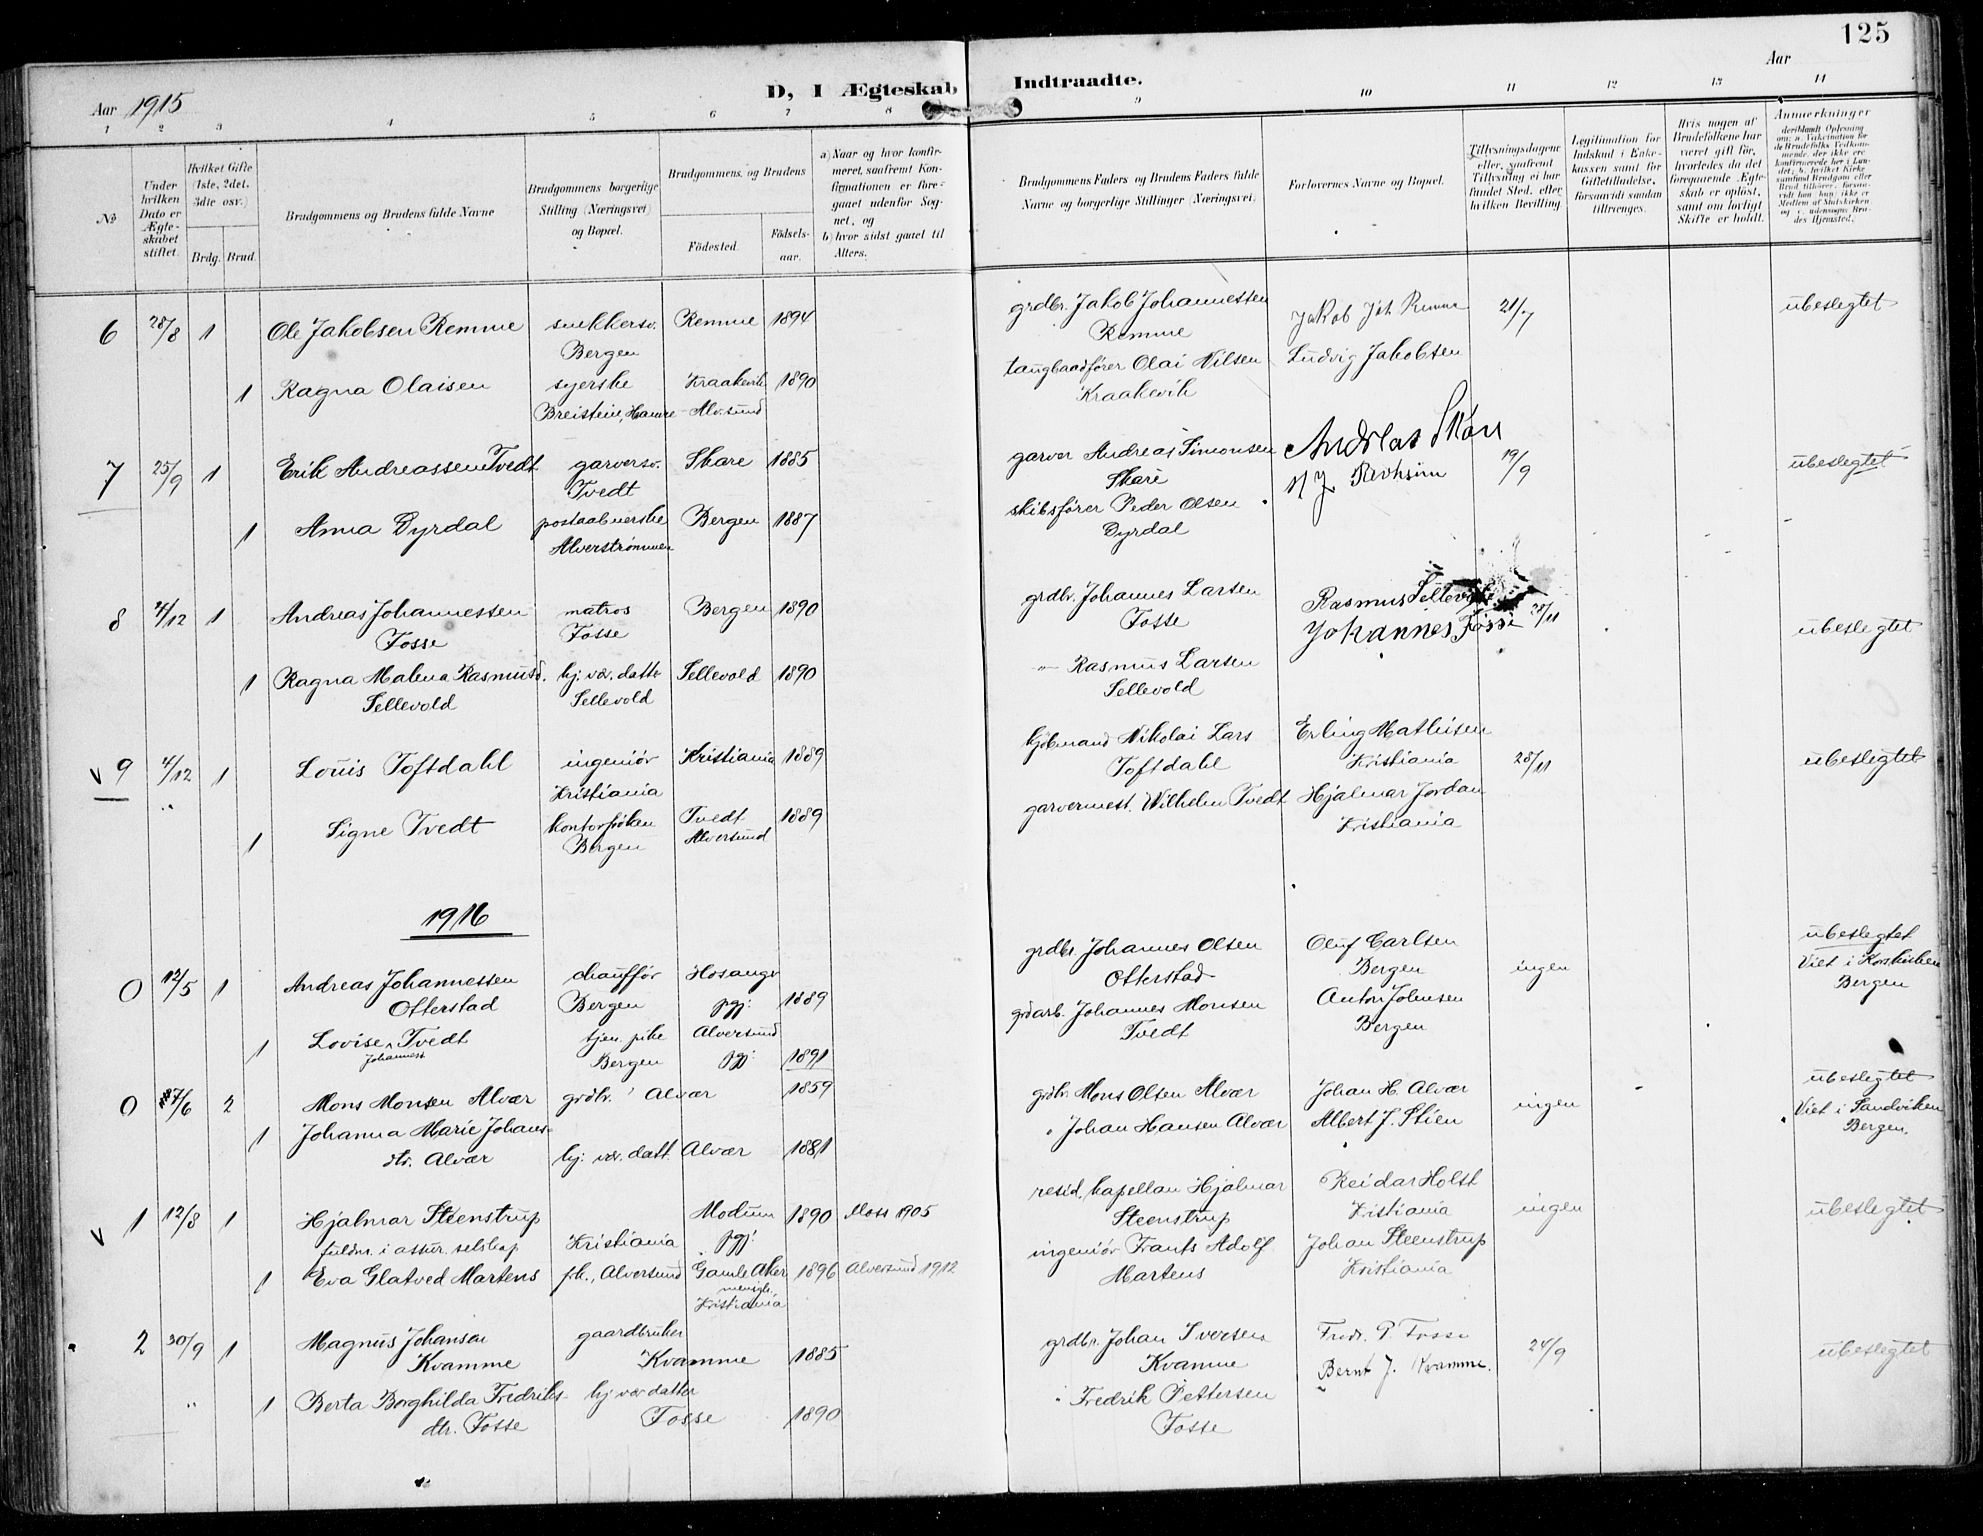 125
Aar 1915
D, I Ægteskab Indtraadte.
Aar
1 2 3 4 5 6 7 8 9 10 11 12 13 14
No
Under hvilken Dato er Ægteskabet stiftet.
Hvilket Gifte (1ste, 2det, 3die osv.)
Brdg. Brud.
Brudgommens og Brudens fulde Navne
Brudgommens borgerlige Stilling (Næringsvei) og Bopæl.
Brudgommens og Brudens
Födested.
Födselsaar.
a) Naar og hvor konfirmeret, saafremt Konfirmationen er foregaaet udenfor Sognet, og
b) hvor sidst gaaet til Alters.
Brudgommens Faders og Brudens Faders fulde Navne og borgerlige Stillinger (Næringsvei)
Forlovernes Navne og Bopæl.
Tillysningsdagene eller, saafremt Tillysning ei har fundet Sted, efter hvilken Bevilling
Legitimation for Indskud i Enkekassen samt for Giftetilladelse, forsaavidt saadan tiltrænges.
Hvis nogen af Brudefolkene har været gift før, hvorledes da det foregaaende Ægteskab er opløst, samt om lovligt Skifte er holdt.
Anmerkninger
6 28/8 1 Ole Jakobsen Remme snekkersv. Bergen Remme 1894 grdbr. Jakob Johannessen Remme Jakob Joh Remme 21/7 ubeslegtet
1 Ragna Olaisen syerske Breistein, Hamre Kraakevik Alv.sund 1890 taugbaadfører Olai Nilsen Kraakevik Ludvig Jakobsen
7 25/9 1 Erik Andreassen Tvedt garversv. Tvedt Skare 1885 garver Andreas Simonsen Skare Andreas Skare 19/9 ubeslegtet
1 Anna Dyrdal postaabnerske Alverstrømmen Bergen 1887 skibsfører Peder Olsen Dyrdal
8 4/12 1 Andreas Johannessen Fosse matros Fosse Bergen 1890 grdbr. Johannes Larsen Fosse Rasmus Sellevold Johannes Fosse 28/11 ubeslegtet
1 Ragna Malena Rasmusd. Sellevold hj. vær. datter Sellevold Sellevold 1890 " Rasmus Larsen Sellevold
v 9 4/12 1 Louis Toftdahl ingeniør Kristiania Kristiania 1889 kjøbmand Nikolai Lars Toftdahl Erling Mathisen Kristiania 28/11 ubeslegtet
" 1 Signe Tvedt kontorfrøken Bergen Tvedt Alversund 1889 garvermest. Wilhelm Tvedt Hjalmar Jordan Kristiania
1916
0 12/5 1 Andreas Johannessen Otterstad chauffør Bergen Hosanger pgj: 1889 grdbr. Johannes Olsen Otterstad Oluf Carlsen Bergen ingen ubeslegtet Viet i Korskirken Bergen
1 Lovise Johannesd Tvedt tjen. pike Bergen Alversund pgj: 1891 grdarb. Johannes Monsen Tvedt Anton Johnsen Bergen
0 7/6 2 Mons Monsen Alvær grdbr. Alvær 1859 grdbr. Mons Olsen Alvær Johan H. Alvær ingen ubeslegtet Viet i Sandviken Bergen.
1 Johanna Marie Johansdtr. Alvær hj. vær. datt. Alvær 1881 " Johan Hansen Alvær Albert J. Stien
v 1 12/8 1 Hjalmar Steenstrup fuldm. i assur. selskap Kristiania Modum pgj: 1890 Moss 1905 resid. kapellan Hjalmar Steenstrup Reidar Holst Kristiania ingen ubeslegtet
1 Eva Glatved Martens frk., Alversund Gamle Aker menigh. Kristiania 1896 Alversund 1912 ingeniør Frants Adolf Martens Johan Steenstrup Kristiania
2 30/9 1 Magnus Johansen Kvamme gaardbruker Kvamme 1885 grdbr. Johan Iversen Kvamme Fredr. P. Fosse 24/9 ubeslegtet
" 1 Berta Borghilda Fredriksdtr. Fosse hj. vær datter Fosse 1890 " Fredrik Pettersen Fosse Bernt J. Kvamme.